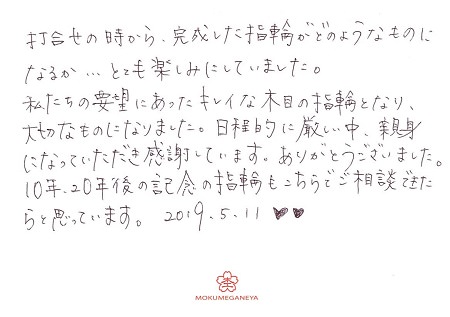 打合せの時から、完成した指輪がどのようなものに
なるか…とても楽しみにしていました。
私たちの要望にあったキレイな木目の指輪となり、
大切なものになりました。日程的に厳しい中、親身
になっていただき感謝しています。ありがとうございました。
10年、20年後の記念の指輪もこちらでご相談できた
らと思っています。 2019.5.11 ♥♥
MOKUMEGANEYA